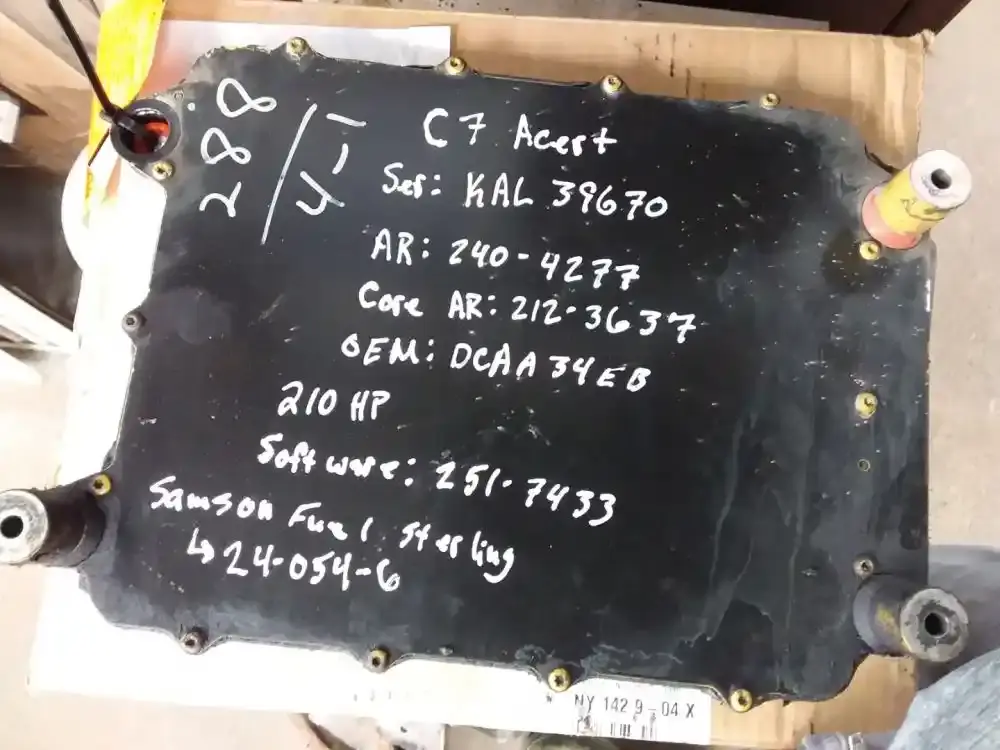 288
/4-1
C7 Acert
Ser: KAL 39670
AR: 240-4277
Core AR: 212-3637
OEM: DCAA34EB
210 HP
Software: 251-7433
Samson Fuel Sterling
↳ 24-054-6
NY 142 9-04 X